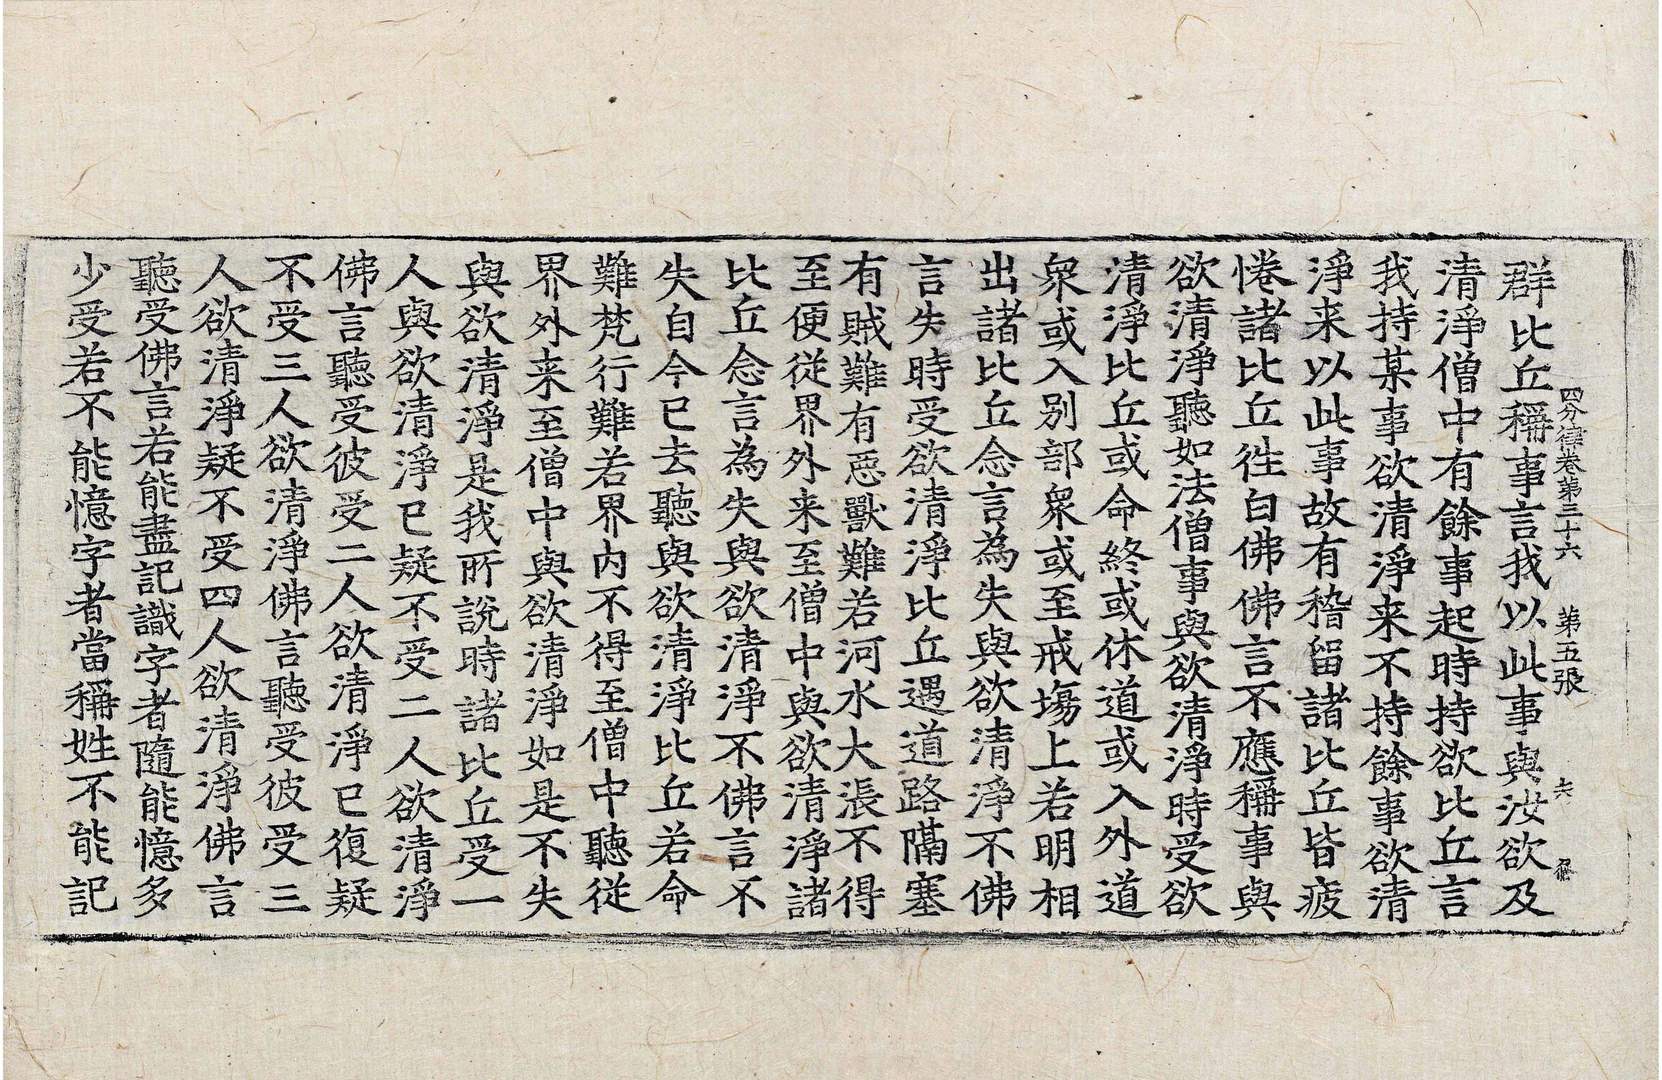 四分律卷第三十六 第五張
群比丘稱事言我以此事與汝欲及
清淨僧中有餘事起時持欲比丘言
我持某事欲清淨来不持餘事欲清
淨来以此事故有稽留諸比丘皆疲
惓諸比丘徃白佛佛言不應稱事與
欲清淨聽如法僧事與欲清淨時受欲
清淨比丘或命終或休道或入外道
衆或入別部衆或至戒塲上若明相
出諸比丘念言為失與欲清淨不佛
言失時受欲清淨比丘遇道路隔塞
有賊難有惡獸難若河水大漲不得
至便從界外来至僧中與欲清淨諸
比丘念言為失與欲清淨不佛言不
失自今已去聽與欲清淨比丘若命
難梵行難若界內不得至僧中聽從
界外来至僧中與欲清淨如是不失
與欲清淨是我所說時諸比丘受一
人與欲清淨已疑不受二人欲清淨
佛言聽受彼受二人欲清淨已復疑
不受三人欲清淨佛言聽受彼受三
人欲清淨疑不受四人欲清淨佛言
聽受佛言若能盡記識字者隨能憶多
少受若不能憶字者當稱姓不能記